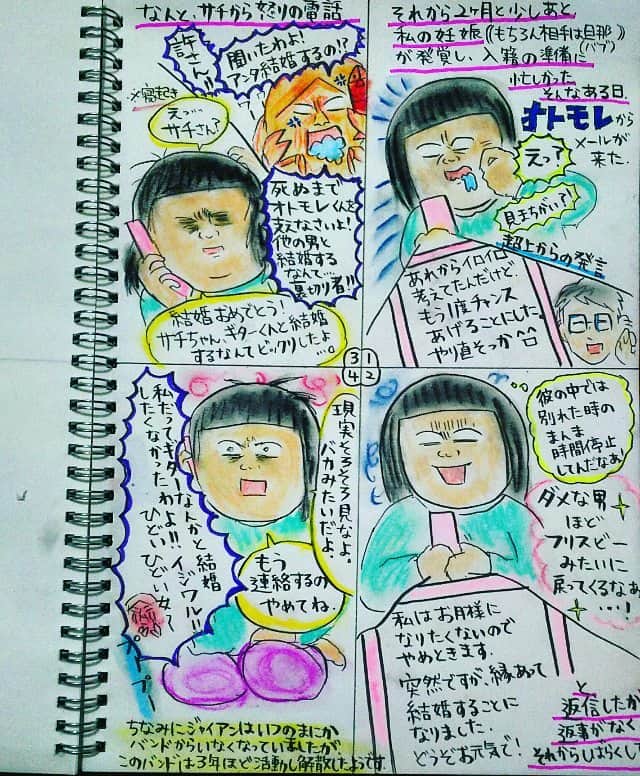 それから2ヶ月と少しあと
私の妊娠(もちろん相手は旦那(バブ))
が発覚し、入籍の準備に
忙しかった
そんなある日、
オトモレから
メールが
来た.
えっ?
見まちがい?!
超上からの発言
あれからイロイロ
考えてたんだけど、
もう1度チャンス
あげることにした。
やり直そっか^^
3 1
4 2
彼の中では
別れた時の
まんま
時間停止
してんだなあ
ダメな男
ほど
フリスビー
みたいに
戻ってくるなあ
・・・!
私はお月様に
なりたくないので
やめときます.
突然ですが、縁あって
結婚することに
なりました.
どうぞお元気で!
と
返信したが
返事がなく
それからしばらくして
なんと、サチから怒りの電話
許さん!!
聞いたわよ!
アンタ結婚するの!?
ワァ
※寝起き
えっ…
サチさん?
死ぬまで
オトモレくんを
支えなさいよ!
他の男と
結婚する
なんて…
裏切り者!!
結婚おめでとう!
サチちゃん、ギターくんと結婚
するなんてビックリしたよ
…。
現実そろそろ見なよ。
バカみたいだよ。
私だってギターなんかと結婚
したくなかったわよ!!イジワル!!
ひどいひどい女~?
もう
連絡するの
やめてね.
プープー
ちなみにジャイアンはいつのまにか
バンドからいなくなっていましたが、
このバンドは3年ほど活動し解散したようです.